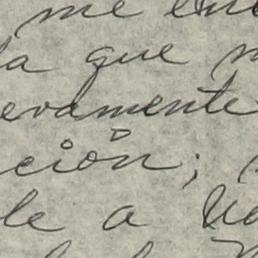 me
a que
evamente
ción;
le a